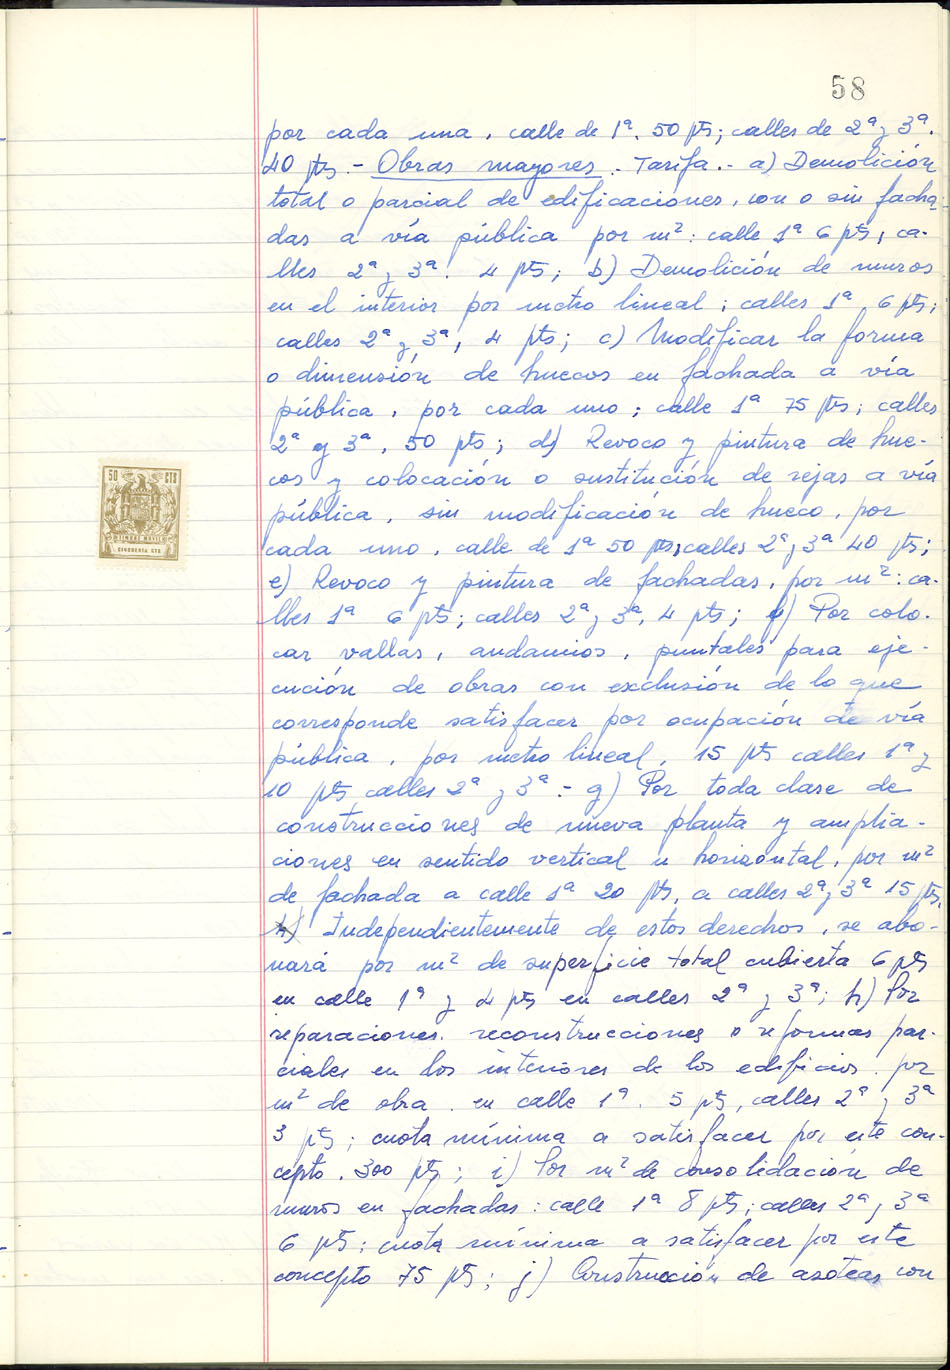 58
por cada una, calle de 1ª, 50 pts; calles de 2ª y 3ª,
40 pts.- Obras mayores.- Tarifa.- a) Demolición
total o parcial de edificaciones, con o sin facha-
das a vía pública por m²: calle 1ª 6 pts, ca-
lles 2ª y 3ª, 4 pts; b) Demolición de muros
en el interior por metro lineal; calles 1ª, 6 pts;
calles 2ª y 3ª, 4 pts; c) Modificar la forma
o dimensión de huecos en fachada a vía
pública, por cada uno; calle 1ª 75 pts; calles
2ª y 3ª, 50 pts; d) Revoco y pintura de hue-
cos y colocación o sustitución de rejas a vía
pública, sin modificación de hueco, por
cada uno, calle de 1ª 50 pts, calles 2ª y 3ª 40 pts;
e) Revoco y pintura de fachadas, por m²: ca-
lles 1ª 6 pts; calles 2ª y 3ª, 4 pts; f) Por colo-
car vallas, andamios, puntales para eje-
cución de obras con exclusión de lo que
corresponde satisfacer por ocupación de vía
pública, por metro lineal, 15 pts calles 1ª y
10 pts calles 2ª y 3ª.- g) Por toda clase de
construcciones de nueva planta y amplia-
ciones en sentido vertical u horizontal, por m²
de fachada a calle 1ª 20 pts, a calles 2ª y 3ª 15 pts.
h) Independientemente de estos derechos, se abo-
nará por m² de superficie total cubierta 6 pts
en calle 1ª y 4 pts en calles 2ª y 3ª; h) Por
reparaciones, reconstrucciones o reformas par-
ciales en los interiores de los edificios, por
m² de obra, en calle 1ª, 5 pts, calles 2ª y 3ª
3 pts; cuota mínima a satisfacer por este con-
cepto, 300 pts; i) Por m² de consolidación de
muros en fachadas: calle 1ª 8 pts; calles 2ª y 3ª
6 pts; cuota mínima a satisfacer por este
concepto 75 pts; j) Construcción de azoteas con
50 CTS
TIMBRE MOVIL
CINCUENTA CTS